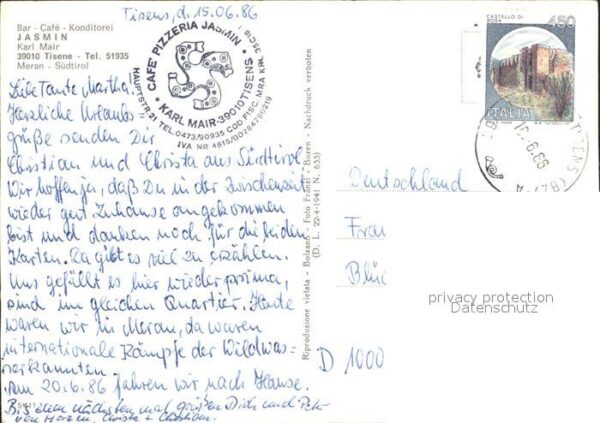 Tisens, d. 15.06.86
Bar - Café - Konditorei
JASMIN
Karl Mair
39010 Tisene - Tel. 51935
Meran - Südtirol
CAFE' PIZZERIA JASMIN
KARL MAIR-39010 TISENS
HAUPTSTR. 21 TEL. 0473/90935 COD FISC. MRA KRL
IVA NR 4615/00284790219
CASTELLO DI
450
ITALIA
Liebe Tante Martha!
Herzliche Urlaubs-
grüße senden Dir
Christian und Christa aus Südtirol.
Wir hoffen ja, daß Du in der Zwischenzeit
wieder gut Zuhause angekommen
bist und danken noch für die beiden
Karten. Da gibt es viel zu erzählen.
Uns gefällt es hier wieder prima,
sind im gleichen Quartier. Heute
waren wir in Meran, da waren
internationale Kämpfe der Wildwas-
serkannten.
Am 20.6.86 fahren wir nach Hause.
Bis zum nächsten mal grüßen Dich und
von Herzen, Christa + Christian.
Riproduzione vietata - Bolzano - Foto Frenzl - Bozen - Nachdruck verboten
(D. L. 22-4-1941 N. 633)
Deutschland
Frau
Blü
D 1000
privacy protection
Datenschutz